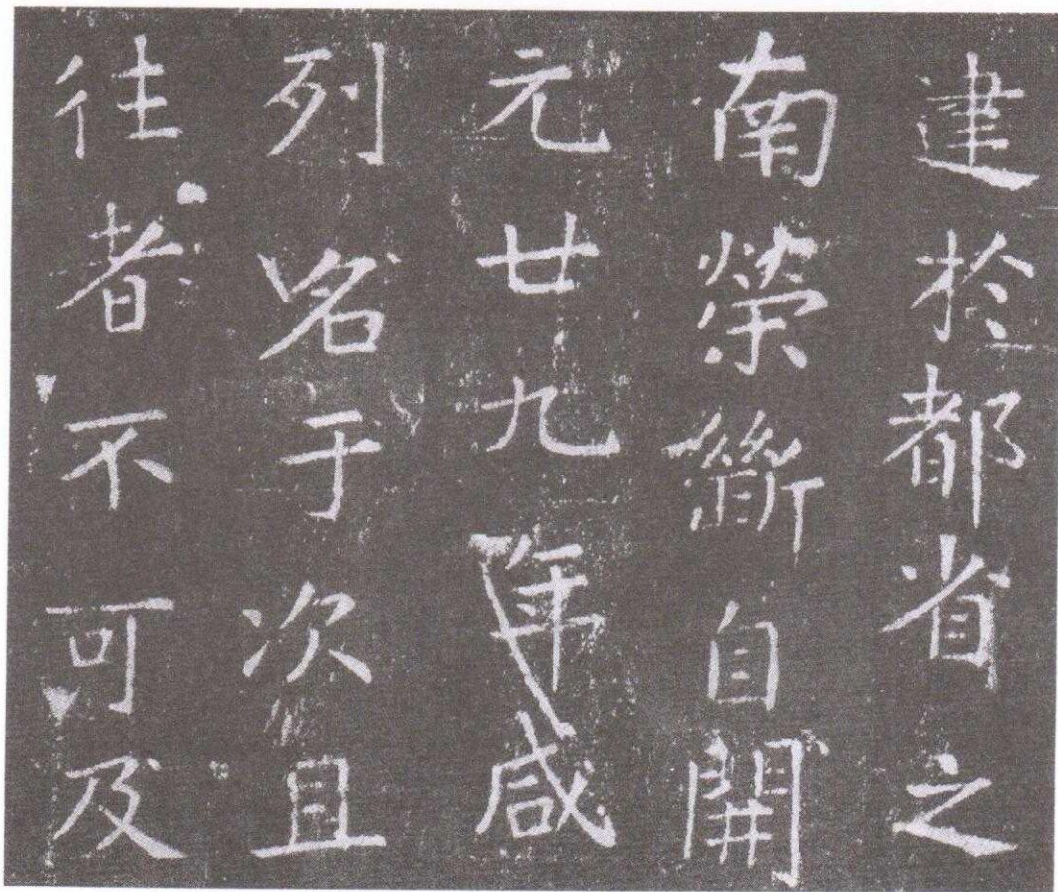 建於都省之
南榮斷自開
元廿九年咸
列名于次且
往者不可及